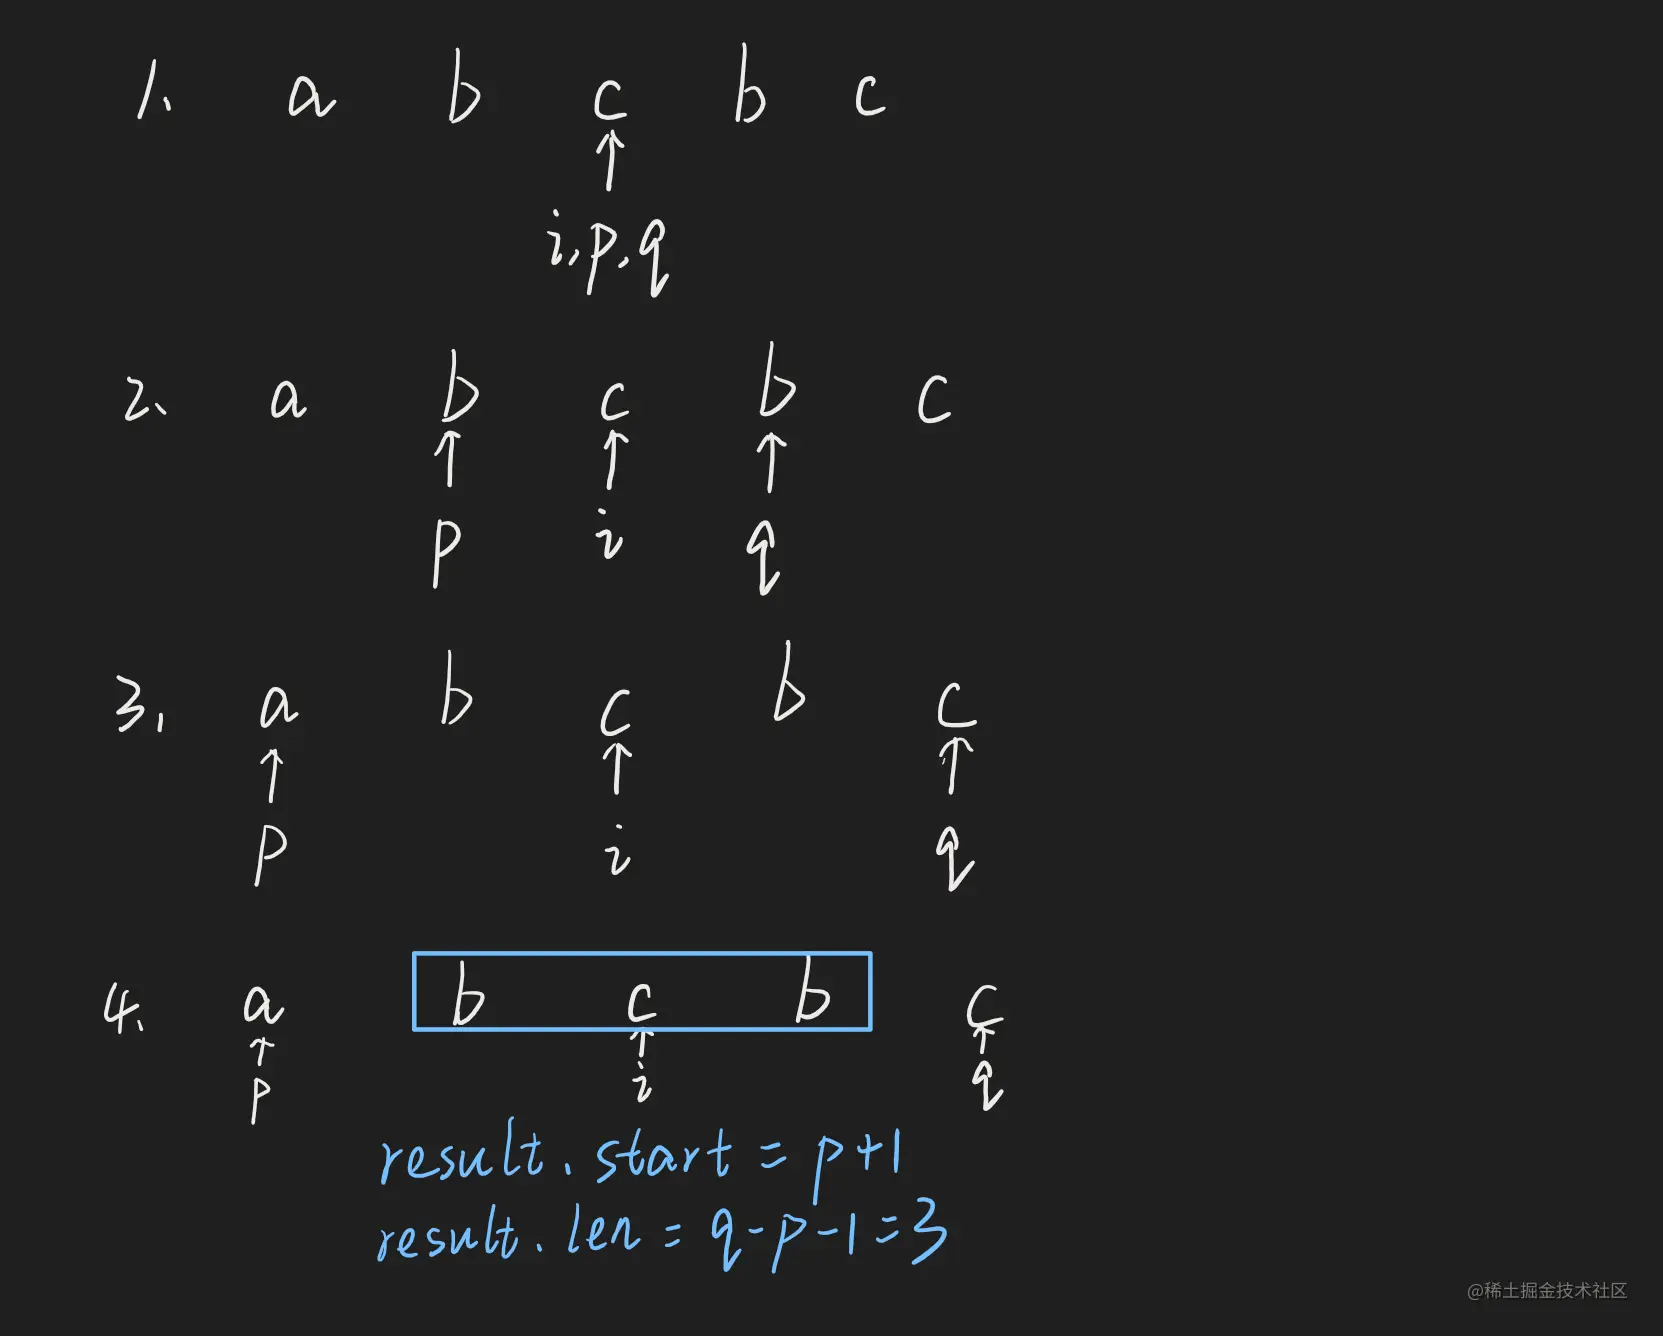 1、 a b c b c
↑
i,p,q
2、 a b c b c
↑ ↑ ↑
p i q
3, a b c b c
↑ ↑ ↑
p i q
4、 a b c b c
↑ ↑ ↑
p i q
result.start = p+1
result.len = q-p-1=3
@稀土掘金技术社区